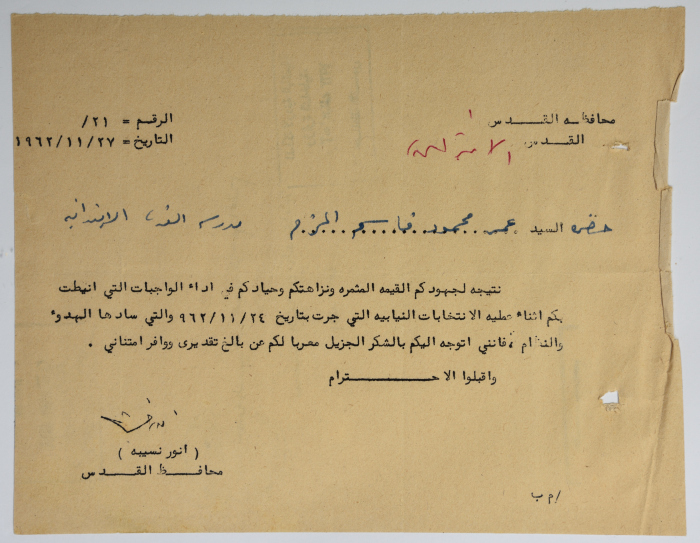 محافظه القدس
القدس
الرقم = ٢١/
التاريخ= ١٩٦٢/١١/٢٧
حضرة السيد عمر محمود قاسم المحترم مدرسة الابتدائيه
نتيجه لجهودكم القيمه المثمره ونزاهتكم وحيادكم في اداء الواجبات التي انيطت
بكم اثناء عطيه الانتخابات النيابيه التي جرت بتاريخ ٩٦٢/١١/٢٤ والتي سادها الهدوء
والنظام ، فانني اتوجه اليكم بالشكر الجزيل معربا لكم عن بالغ تقديرى ووافر امتناني .
واقبلوا الاحترام
( انور نسيبه )
محافظ القدس
/م ب